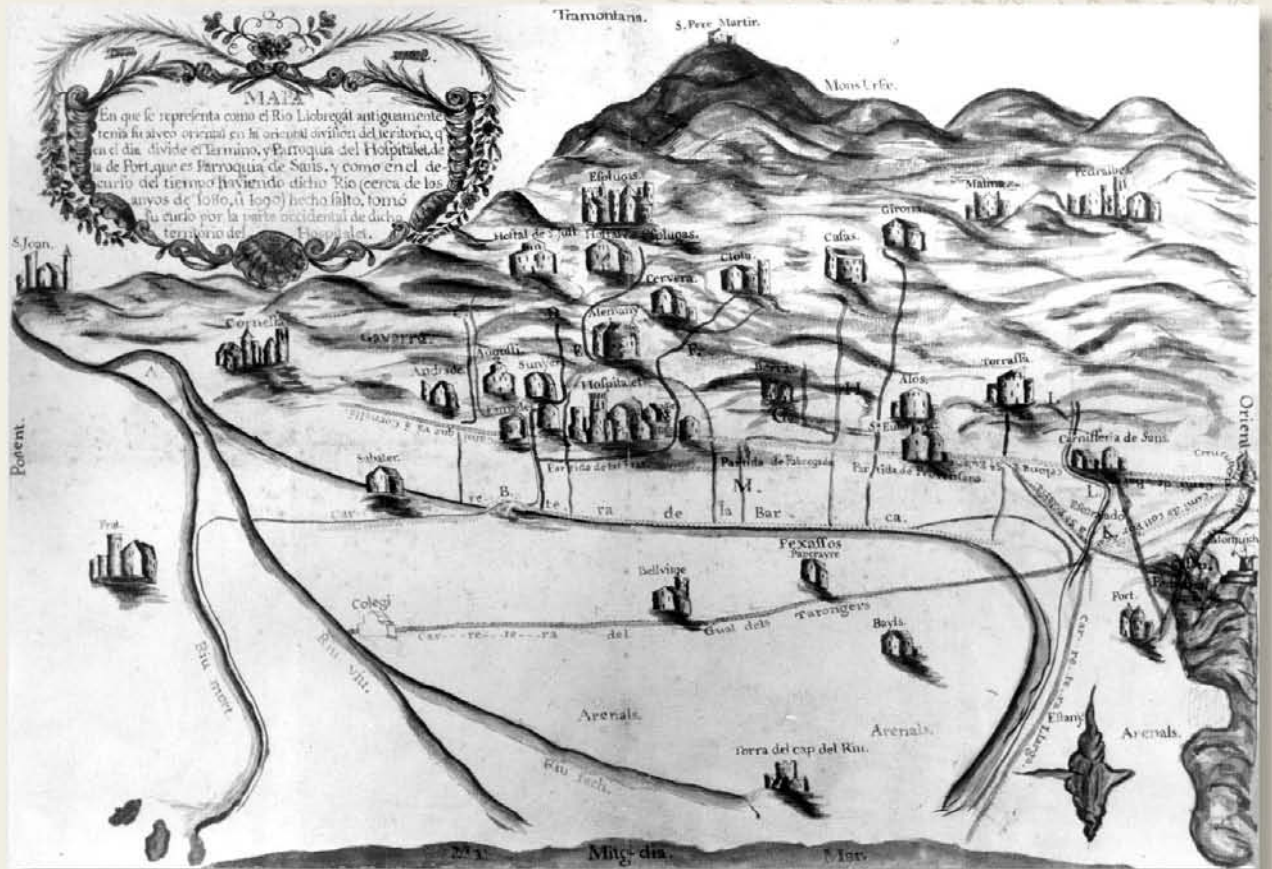 Tramontana.
S. Pere Martir.
Mons Urse.
MAPA
En que se representa como el Rio Llobregát antiguamente
tenia su alveo oriental en la oriental division del territorio, q̃
en el dia divide el Termino, y Parroquia del Hospitalet, de
la de Port, que es Parroquia de Sans, y como en el de-
curso del tiempo haviendo dicho Rio (cerca de los
anyos de 1080, ù 1090) hecho salto, tomó
su curso por la parte occidental de dicho
territorio del Hospitalet.
S. Joan.
Esplugas.
Malina.
Pedralbes.
Girona.
Hostal de S. Just
Hostal de Esplugas.
Casas.
Clota.
Cervera.
Cornellà
Gavarra.
Alemany
Andrade.
Sunyer
Hospitalet.
Alós.
Torrassa.
F.
H.
L.
A.
Ponent.
Orient
Carnisseria de Sans.
Creu
Sabater.
Partida de Fabregada
Partida de Provensana
M.
L.
B.
Car re te ra de la Bar ca.
Prat.
Pexassos
Papagayre
Bellvitge
Port.
Colegi
Car--re--te--ra del Gual dels Tarongers
Bayls.
Riu mort.
Riu viu.
Riu sech.
Arenals.
Arenals.
Arenals.
Estany
car. re. te. ra Llarga.
Torra del cap del Riu.
Mitg dia.
Mar.